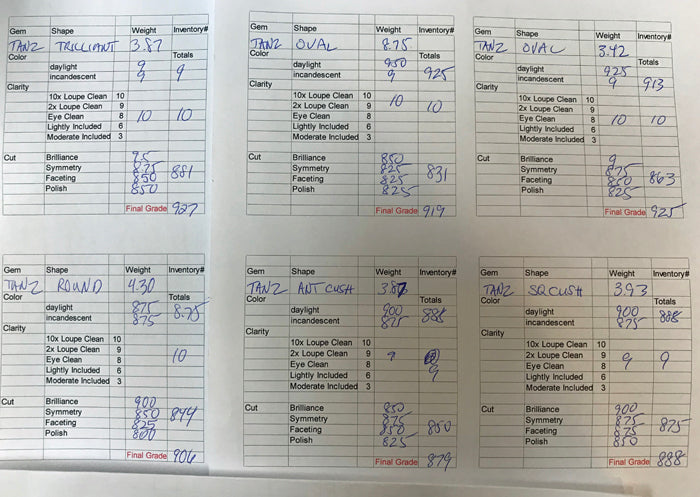 Gem Shape Weight Inventory#
TANZ TRILLIANT 3.87
Color Totals
daylight 9
incandescent 9 9
Clarity
10x Loupe Clean 10
2x Loupe Clean 9
Eye Clean 8 10 10
Lightly Included 6
Moderate Included 3
Cut Brilliance 95
Symmetry 875 881
Faceting 850
Polish 850
Final Grade 927
Gem Shape Weight Inventory#
TANZ OVAL 8.75
Color Totals
daylight 950
incandescent 9 925
Clarity
10x Loupe Clean 10 10
2x Loupe Clean 9 10
Eye Clean 8
Lightly Included 6
Moderate Included 3
Cut Brilliance 850
Symmetry 825 831
Faceting 825
Polish 825
Final Grade 919
Gem Shape Weight Inventory#
TANZ OVAL 3.42
Color Totals
daylight 925
incandescent 9 913
Clarity
10x Loupe Clean 10
2x Loupe Clean 9
Eye Clean 8 10 10
Lightly Included 6
Moderate Included 3
Cut Brilliance 9
Symmetry 875 863
Faceting 850
Polish 825
Final Grade 925
Gem Shape Weight Inventory#
TANZ ROUND 4.30
Color Totals
daylight 875 8.75
incandescent 875
Clarity
10x Loupe Clean 10
2x Loupe Clean 9
Eye Clean 8 10
Lightly Included 6
Moderate Included 3
Cut Brilliance 900
Symmetry 850 844
Faceting 825
Polish 800
Final Grade 906
Gem Shape Weight Inventory#
TANZ ANT CUSH 3.87
Color Totals
daylight 900 888
incandescent 875
Clarity
10x Loupe Clean 10
2x Loupe Clean 9 9
Eye Clean 8 9
Lightly Included 6
Moderate Included 3
Cut Brilliance 850
Symmetry 875
Faceting 850 850
Polish 825
Final Grade 879
Gem Shape Weight Inventory#
TANZ SQ CUSH 3.93
Color Totals
daylight 900 888
incandescent 875
Clarity
10x Loupe Clean 10
2x Loupe Clean 9 9 9
Eye Clean 8
Lightly Included 6
Moderate Included 3
Cut Brilliance 900
Symmetry 875 875
Faceting 875
Polish 850
Final Grade 888